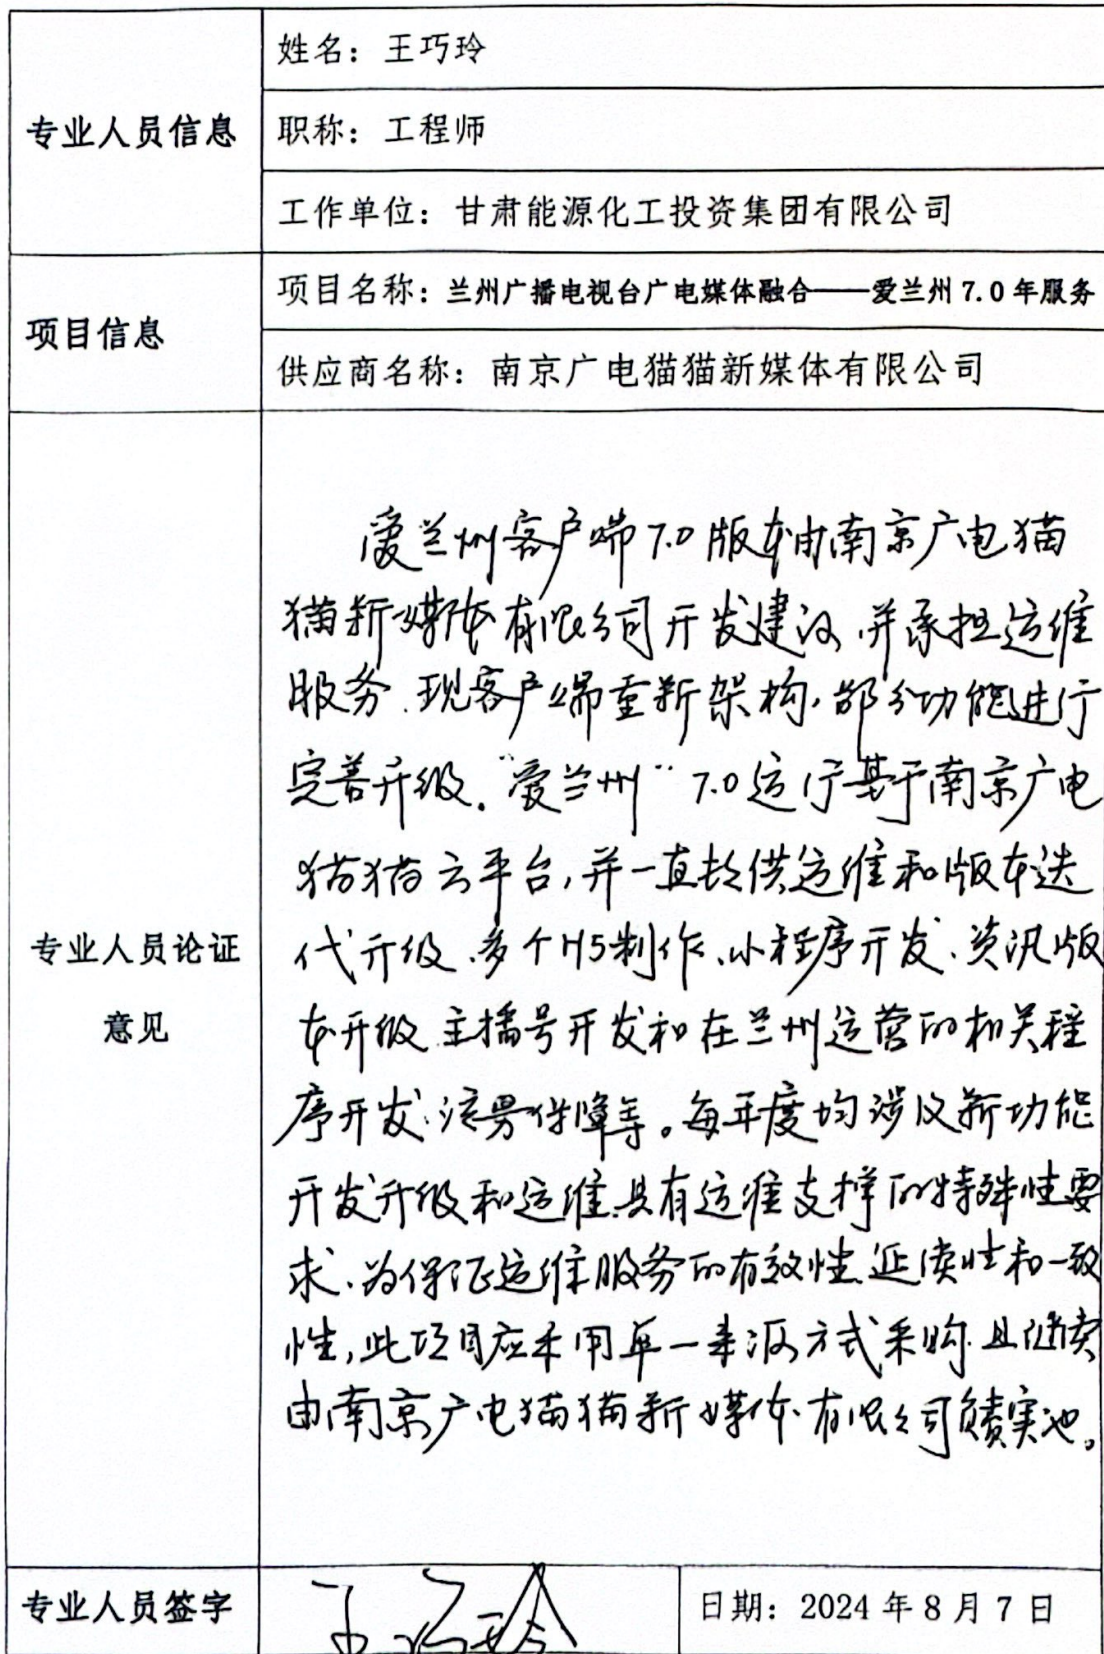 专业人员信息
姓名：王巧玲
职称：工程师
工作单位：甘肃能源化工投资集团有限公司
项目信息
项目名称：兰州广播电视台广电媒体融合——爱兰州 7.0 年服务
供应商名称：南京广电猫猫新媒体有限公司
专业人员论证
意见
爱兰州客户端 7.0 版本由南京广电猫
猫新媒体有限公司开发建议，并承担运维
服务.现客户端重新架构，部分功能进行
完善升级。“爱兰州” 7.0运行基于南京广电
猫猫云平台，并一直提供运维和版本迭
代升级、多个H5制作、小程序开发、资讯版
本升级、主播号开发和在兰州运营的相关程
序开发、流量保障等。每年度均涉及新功能
开发升级和运维、具有运维支撑的特殊性要
求、为保证运维服务的有效性、延续性和一致
性，此项目应采用单一来源方式采购.且继续
由南京广电猫猫新媒体有限公司负责实施。
专业人员签字
王巧玲
日期：2024 年 8 月 7 日